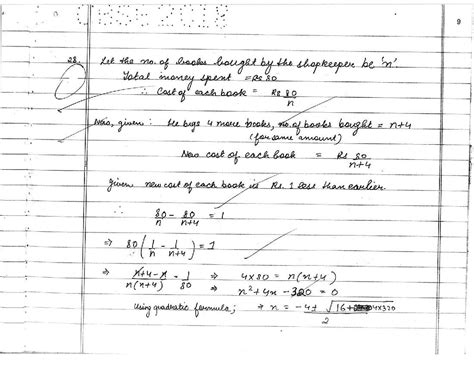 CBSE 2018
9
28. Let the no. of books bought by the shopkeeper be 'n'.
Total money spent = Rs 80
∴ Cost of each book = Rs 80/n
Now, given : He buys 4 more books, no. of books bought = n+4
(for same amount)
New cost of each book = Rs 80/n+4
Given new cost of each book is Rs. 1 less than earlier.
80/n - 80/n+4 = 1
⇒ 80(1/n - 1/n+4) = 1
⇒ n+4-n/n(n+4) = 1/80 ⇒ 4x80 = n(n+4)
⇒ n²+4n-320 = 0
Using quadratic formula; ⇒ n = -4± √16+4x320/2